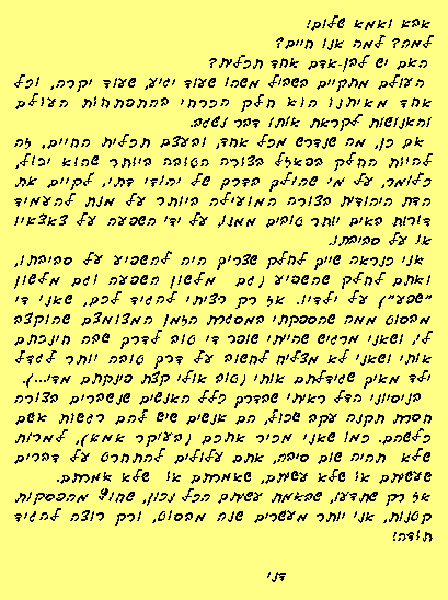 אבא ואמא שלום!
למה? למה אנו חיים?
האם יש לבן-אדם אחד תכלית?
העולם מתקיים בשביל משהו שעוד יגיע, שעוד יקרה, וכל
אחד מאיתנו הוא חלק הכרחי בהתפתחות העולם
והאנושות לקראת אותו דבר נשגב.
אם כן, מה שנדרש מכל אחד, ובעצם תכלית החיים, זה
להיות החלק בפאזל בצורה הטובה ביותר שהוא יכול,
כלומר, על מי שהולך בדרך של יהודי דתי, לקיים את
הדת היהודית בצורה המועילה ביותר על מנת להעמיד
דורות באים יותר טובים ממנו, על ידי השפעה על צאצאיו
או על סביבתו.
אני כנראה שייך לחלק שצריך היה להשפיע על סביבתו,
ואתם לחלק שהשפיע (גם מלשון השפעה וגם מלשון
"שפע") על ילדיו. אז רק רציתי להגיד לכם, שאני די
מבסוט ממה שהספקתי במסגרת הזמן המצומצם שהוקצב
לי, ושאני מרגיש שהייתי שופר די טוב לדרך שבה חינכתם
אותי ושאני לא מצליח לחשוב על דרך טובה יותר לגדל
ילד מאיך שגידלתם אותי (טוב אולי קצת פינקתם מדי...).
בנסיוני הדל ראיתי שבדרך כלל האנשים שנשברים בצורה
חסרת תקנה עקב שכול, הם אנשים שיש להם רגשות אשם
כלשהם. כמו שאני מכיר אתכם (ובעיקר אמא), למרות
שלא תהיה שום סיבה, אתם עלולים להתחרט על דברים
שעשיתם או שלא עשיתם, שאמרתם או שלא אמרתם.
אז רק שתדעו, שבאמת עשיתם הכל נכון, שחוץ מהפסקות
קטנות, אני יותר מעשרים שנה מבסוט, ורק רוצה להגיד
תודה!
דני